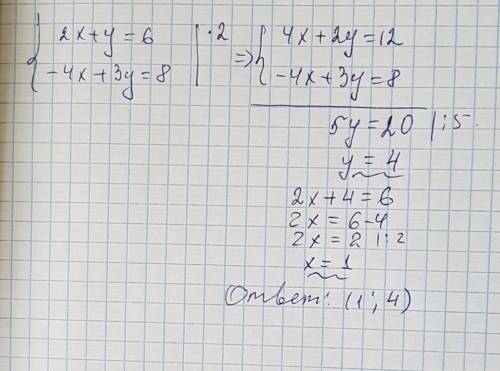 { 2x+y=6 |·2 => { 4x+2y=12
-4x+3y=8 | -4x+3y=8
5y=20 |:5
y=4
2x+4=6
2x=6-4
2x=2 |:2
x=1
Ответ: (1; 4)